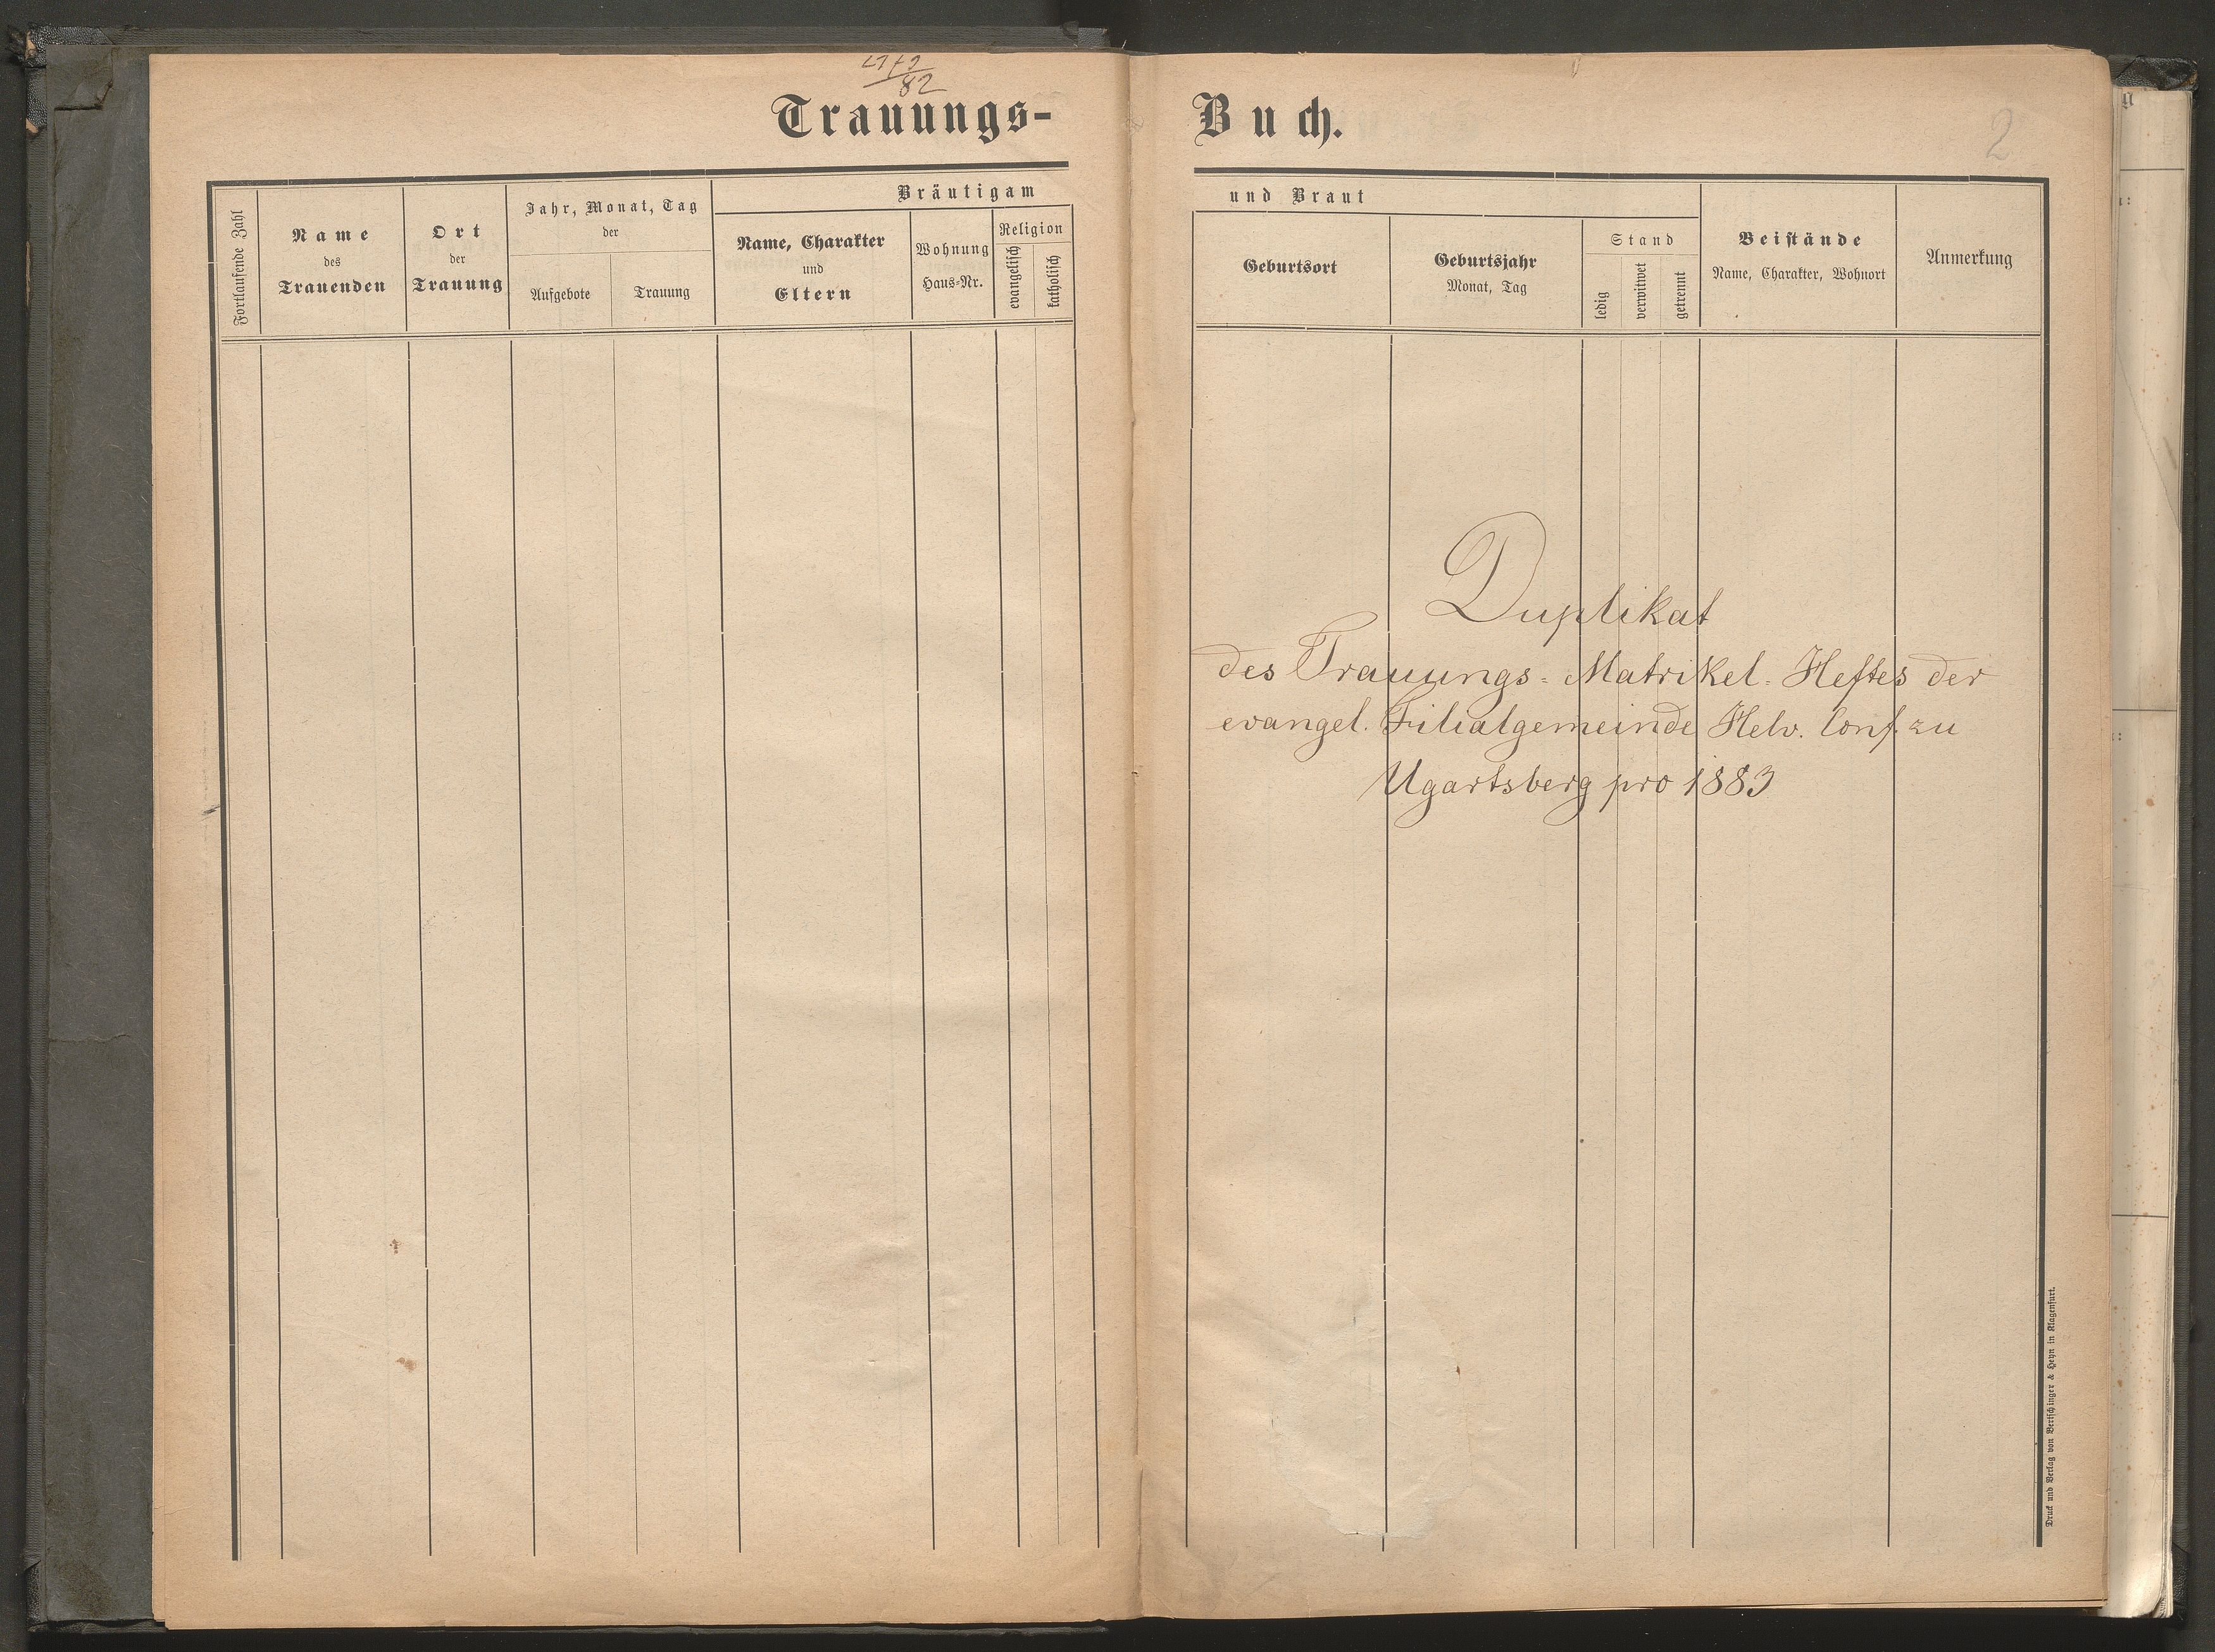 82
Trauungs-
Fortlaufende Zahl
Name
des
Trauenden
Ort
der
Trauung
Jahr, Monat, Tag
der
Aufgebote
Trauung
Bräutigam
Name, Charakter
und
Eltern
Wohnung
Haus-Nr.
Religion
evangelisch
katholisch
Buch.
2
und Braut
Geburtsort
Geburtsjahr
Monat, Tag
Stand
ledig
verwitwet
getrennt
Beistände
Name, Charakter, Wohnort
Anmerkung
Duplikat
des Trauungs=Matrikel=Heftes der
evangel. Filialgemeinde Helv. Conf. zu
Ugartsberg pro 1883
Druck und Verlag von Bertschinger & Heyn in Klagenfurt.